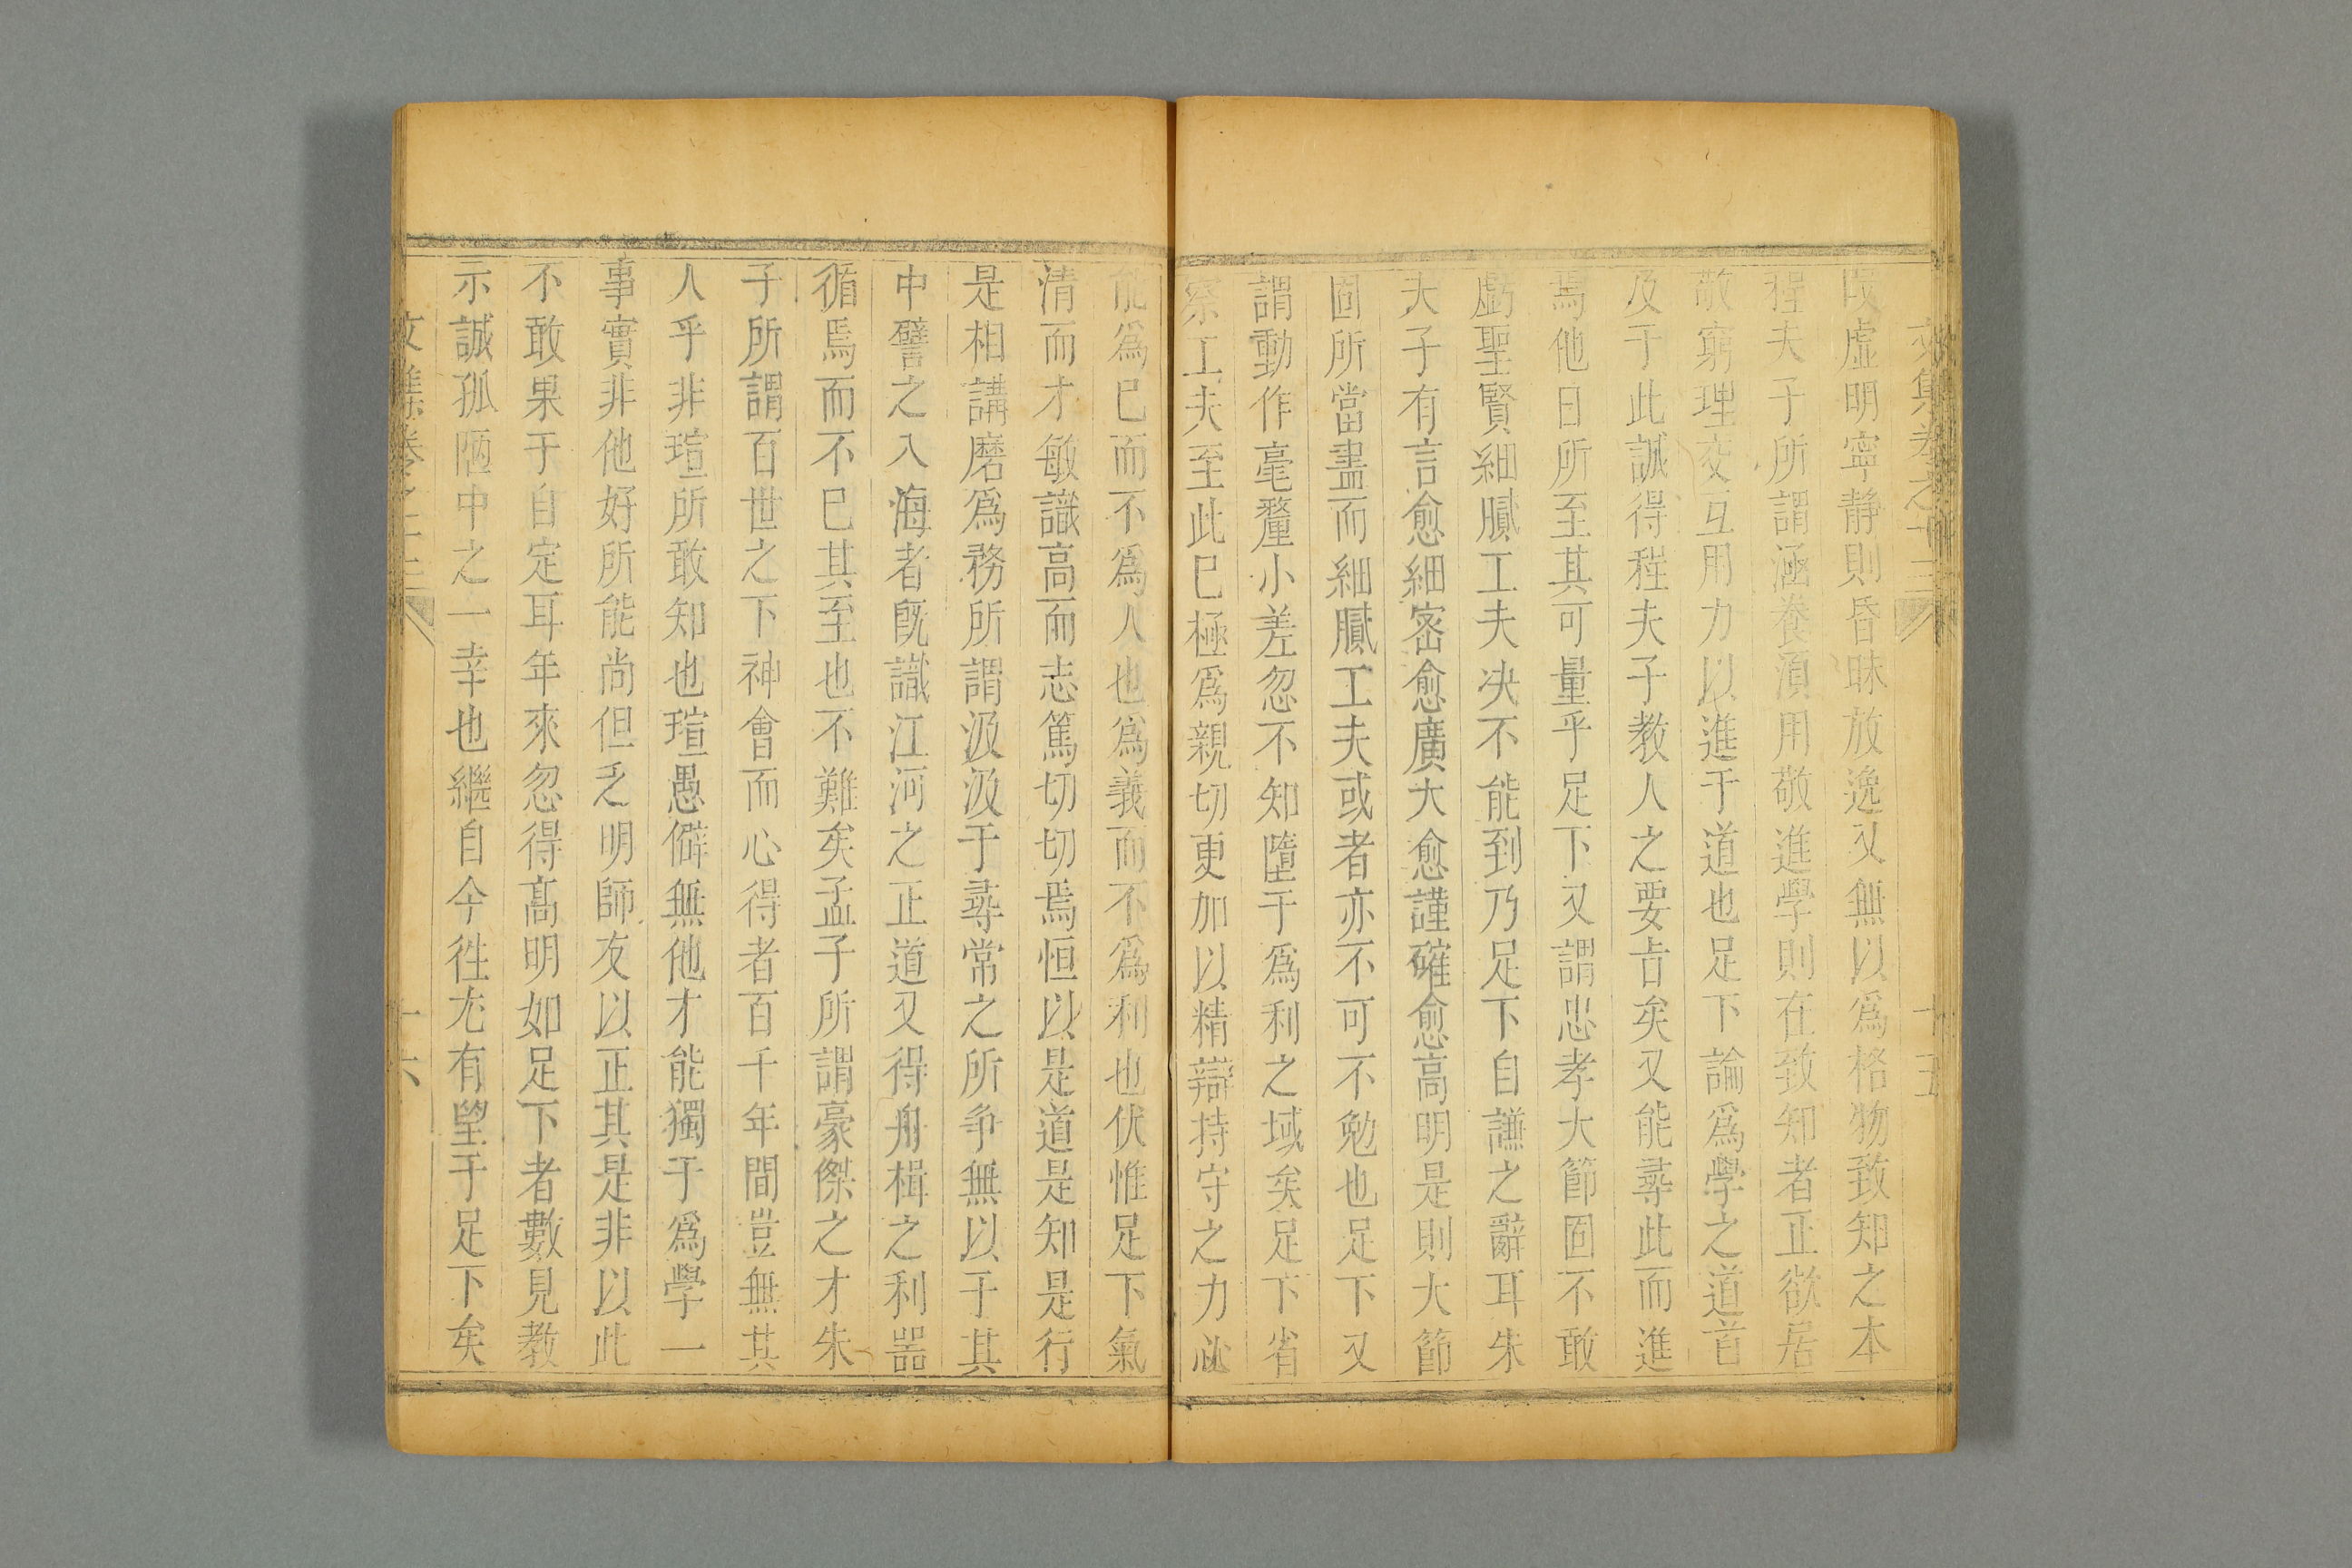 文集卷之十三
十五
段虛明寧靜則昏昧放逸又無以爲格物致知之本
程夫子所謂涵養湏用敬進學則在致知者正欲居
敬窮理交互用力以進于道也足下論爲學之道首
及于此誠得程夫子教人之要㫖矣又能尋此而進
焉他日所至其可量乎足下又謂忠孝大節固不敢
虧聖賢細膩工夫决不能到乃足下自謙之辭耳朱
夫子有言愈細密愈廣大愈謹確愈高明是則大節
固所當盡而細膩工夫或者亦不可不勉也足下又
謂動作毫釐小差忽不知墮于爲利之域矣足下省
察工夫至此巳極爲親切更加以精辯持守之力必
能爲巳而不爲人也爲義而不爲利也伏惟足下氣
清而才敏識高而志篤切切焉恒以是道是知是行
是相講磨爲務所謂汲汲于尋常之所争無以于其
中譬之入海者旣識江河之正道又得舟楫之利噐
循焉而不巳其至也不難矣孟子所謂豪傑之才朱
子所謂百世之下神會而心得者百千年間豈無其
人乎非瑄所敢知也瑄愚僻無他才能獨于爲學一
事實非他好所能尚但乏明師友以正其是非以此
不敢果于自定耳年來忽得髙明如足下者數見教
示誠孤陋中之一幸也繼自今徃尤有望于足下矣
文集卷之十三
十六